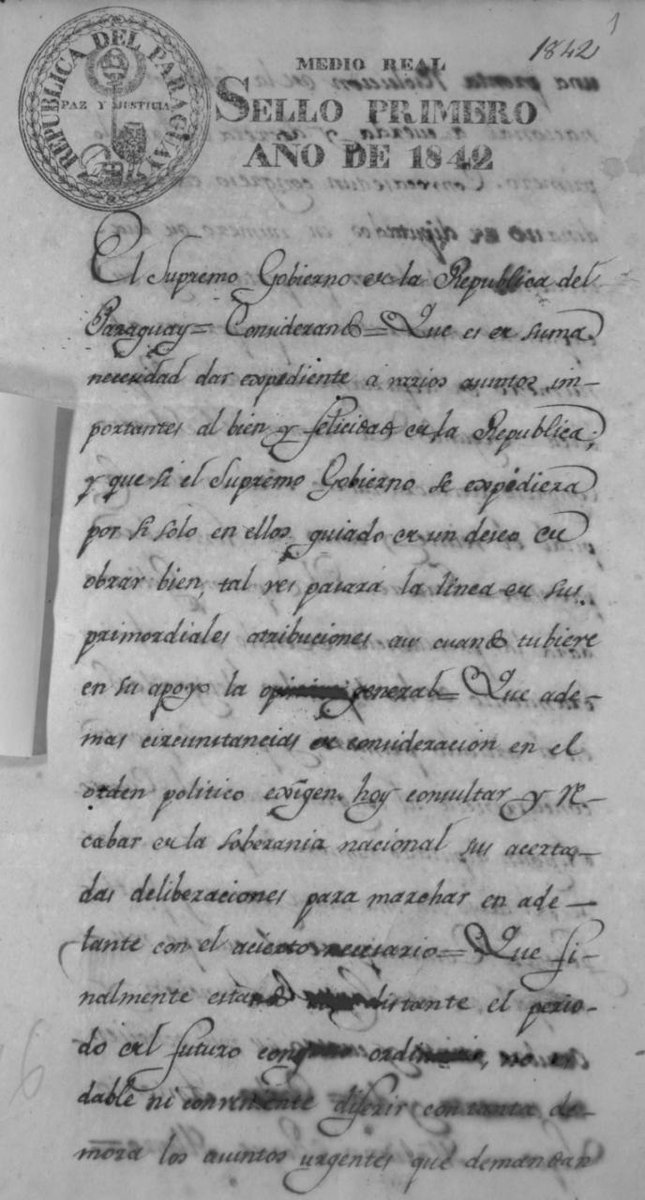 1
1842
REPUBLICA DEL PARAGUAY
PAZ Y JUSTICIA
MEDIO REAL
SELLO PRIMERO
AÑO DE 1842
El Supremo Gobierno de la Republica del
Paraguay= Considerando= Que es de suma
necesidad dar expediente á varios asuntos im-
portantes al bien y felicidad de la Republica;
y que si el Supremo Gobierno se expédiera
por si solo en ellos guiado de un deseo de
obrar bien, tal ves pasará la línea de sus
primordiales atribuciones aun cuando tubiere
en su apoyo la opinion general= Que ade-
mas circunstancias de consideración en el
orden politico exigen hoy consultar y re-
cabar de la soberania nacional sus acerta-
das deliberaciones para marchar en ade-
lante con el acierto necesario= Que fi-
nalmente estando distante el perio-
do del futuro congreso ordinario, no es
dable ni conveniente diferir con tanta de-
mora los asuntos urgentes que demandan